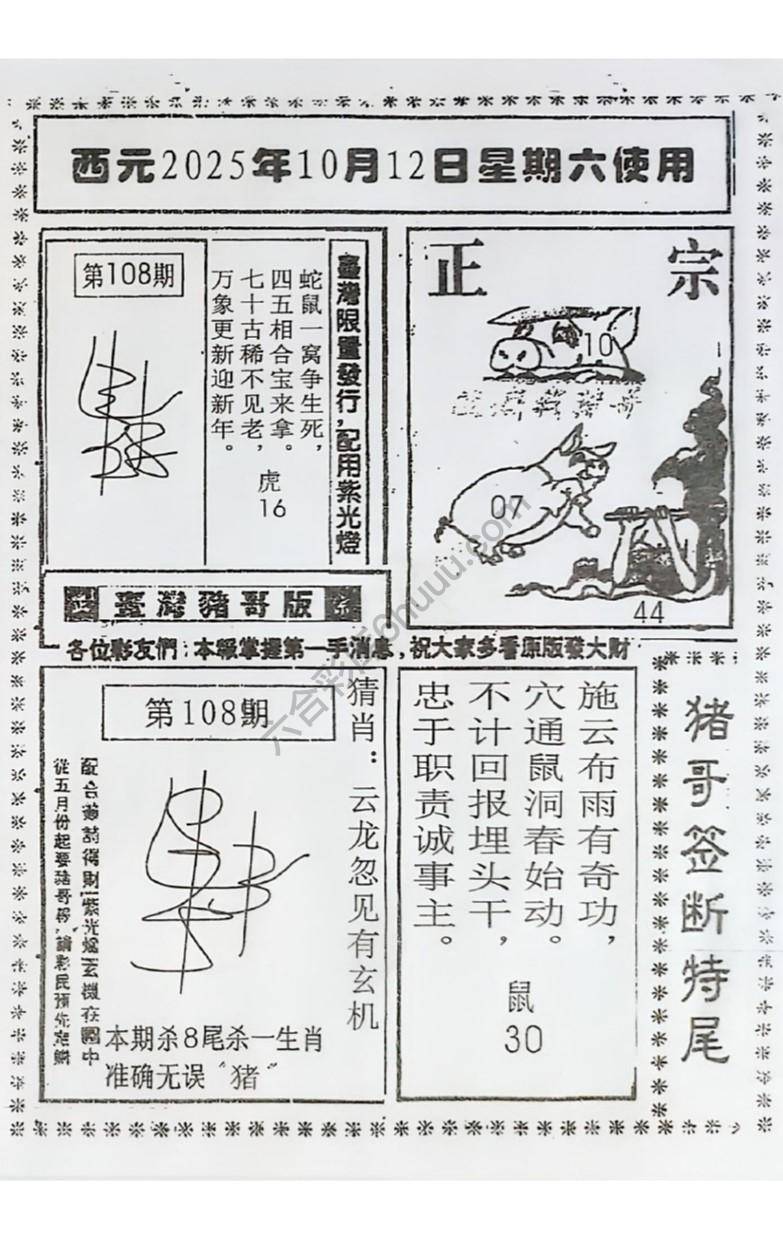 西元2025年10月12日星期六使用
第108期
臺灣限量發行,配用紫光燈
蛇鼠一窝争生死,
四五相合宝来拿。
七十古稀不见老,
万象更新迎新年。
虎
16
正宗
10
07
44
正 臺灣豬哥版 宗
各位彩友們:本報掌握第一手消息,祝大家多看原版發大財
第108期
猜肖:云龙忽见有玄机
從五月份起要豬哥報,請彩民預先定購
本期杀8尾杀一生肖
准确无误“猪”
施云布雨有奇功,
穴通鼠洞春始动。
不计回报埋头干,
忠于职责诚事主。
鼠
30
猪哥签断特尾